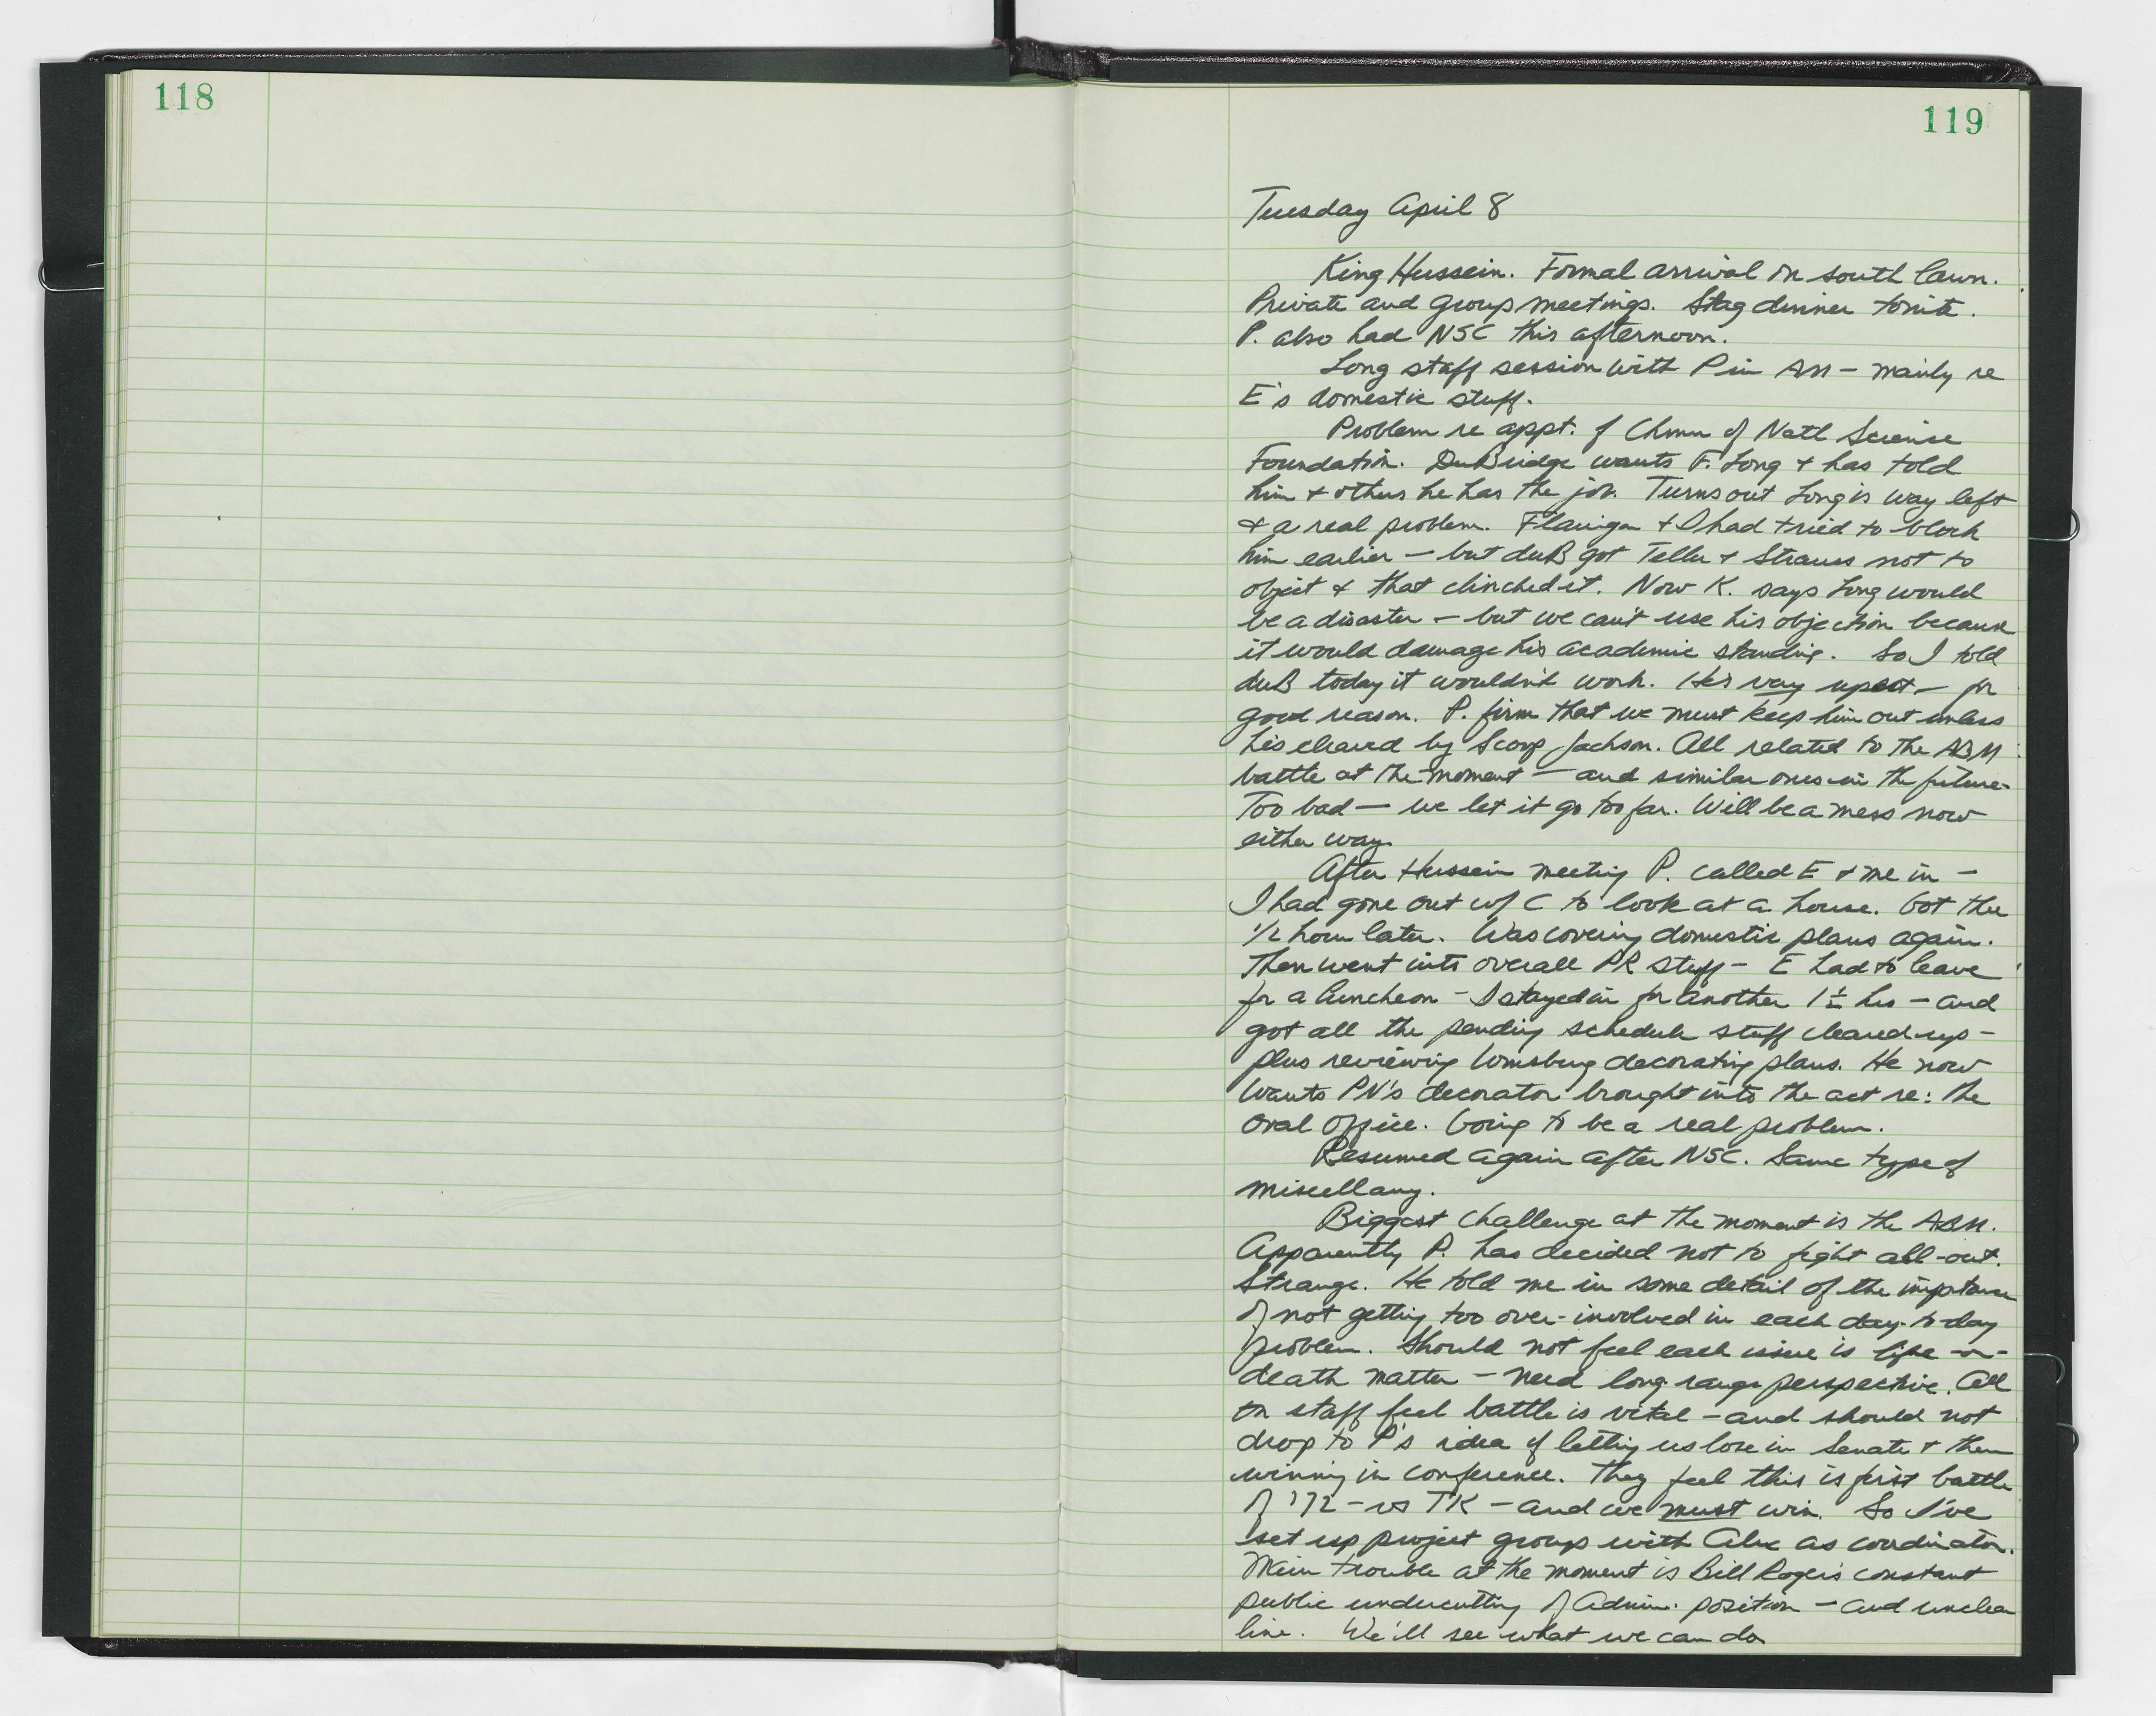 118
119
Tuesday April 8
King Hussein. Formal arrival on south lawn.
Private and group meetings. Stag dinner tonite.
P. also had NSC this afternoon.
Long staff session with P in AM - mainly re
E's domestic stuff.
Problem re appt. of Chmn of Natl Science
Foundation. DuBridge wants F. Long + has told
him + others he has the job. Turns out Long is way left
+ a real problem. Flanigan + I had tried to block
him earlier - but duB got Teller + Strauss not to
object + that clinched it. Now K. says Long would
be a disaster - but we can't use his objection because
it would damage his academic standing. So I told
duB today it wouldn't work. He's very upset - for
good reason. P. firm that we must keep him out unless
he's cleared by Scoop Jackson. All related to the ABM
battle at the moment - and similar ones in the future.
Too bad - we let it go too far. Will be a mess now
either way.
After Hussein meeting P. called E + me in -
I had gone out w/ C to look at a house. Got there
1/2 hour later. Was covering domestic plans again.
Then went into overall PR stuff - E had to leave
for a luncheon - I stayed in for another 1 ½ hrs - and
got all the pending schedule stuff cleared up -
plus reviewing Wmsburg decorating plans. He now
wants PN's decorator brought into the act re: the
Oval Office. Going to be a real problem.
Resumed again after NSC. Same type of
miscellany.
Biggest challenge at the moment is the ABM.
Apparently P. has decided not to fight all-out.
Strange. He told me in some detail of the importance
of not getting too over-involved in each day-to-day
problem. Should not feel each issue is life-or-
death matter - need long range perspective. All
on staff feel battle is vital - and should not
drop to P's idea of letting us lose in Senate + then
winning in conference. They feel this is first battle
of '72 - vs TK - and we must win. So I've
set up project group with Alex as coordinator.
Main trouble at the moment is Bill Rogers constant
public undercutting of Admin. position - and unclear
line. We'll see what we can do